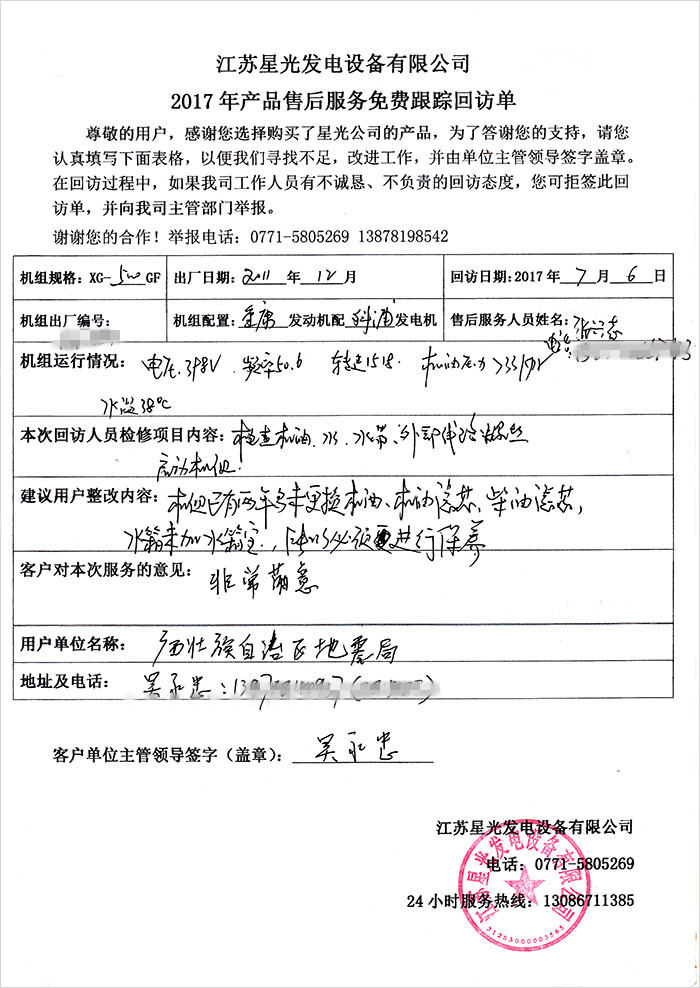 江苏星光发电设备有限公司
2017年产品售后服务免费跟踪回访单
尊敬的用户，感谢您选择购买了星光公司的产品，为了答谢您的支持，请您
认真填写下面表格，以便我们寻找不足，改进工作，并由单位主管领导签字盖章。
在回访过程中，如果我司工作人员有不诚恳、不负责的回访态度，您可拒签此回
访单，并向我司主管部门举报。
谢谢您的合作！举报电话：0771-5805269 13878198542
机组规格：XG-500GF 出厂日期：2011 年 12 月 回访日期：2017年 7 月 6 日
机组出厂编号： 机组配置： 发动机配 发电机 售后服务人员姓名：
电话：
机组运行情况： 电压398V 频率50.6 转速1518 机油压力
水温38℃
本次回访人员检修项目内容：检查机油、水、水带、外部
启动机组.
建议用户整改内容：机组已有两年多未更换机油、机油滤芯、柴油滤芯，
水箱未加水箱宝，所以必须要进行保养
客户对本次服务的意见： 非常满意
用户单位名称： 广西壮族自治区地震局
地址及电话： 吴永忠：
客户单位主管领导签字（盖章）： 吴永忠
江苏星光发电设备有限公司
电话：0771-5805269
24小时服务热线：13086711385
江苏星光发电设备有限公司
31283000003565